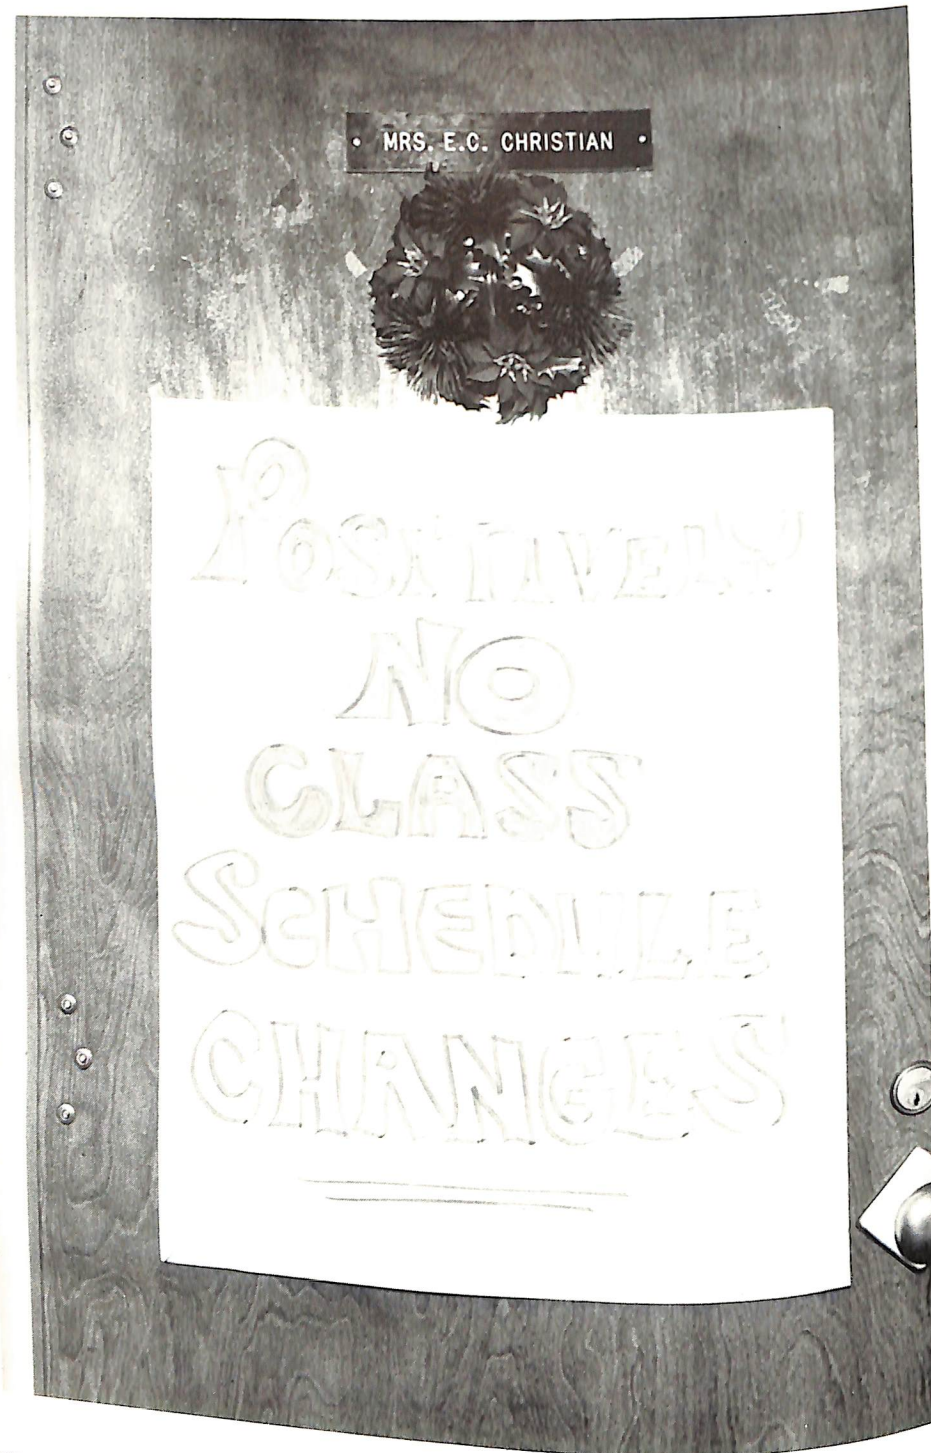 MRS. E.C. CHRISTIAN
POSITIVELY
NO
CLASS
SCHEDULE
CHANGES